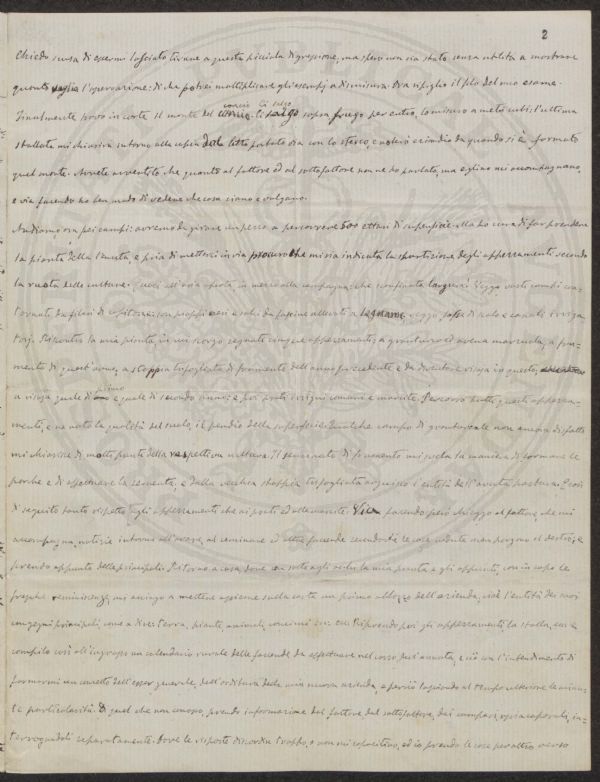 2
Chiedo scusa di essermi lasciato tirare a questa piccola digressione, ma spero non sia stata senza utilità a mostrare
quanto voglia l'osservazione: di che potrei moltiplicare gli esempj a dismisura. Ora ripiglio il filo del mio esame.
Finalmente trovo in corte il monte del concio. Ci salgo
salgo sopra, frugo per entro, lo misuro a metri cubi: l'ultima
stallata mi chiarirà intorno alla copia del letto
quel monte. Avrete avvertito che quanto al fattore ed al sottofattore non ne ho parlato, ma eglino mi accompagnano,
e via facendo ho ben modo di vedere che cosa siano e valgano.
Andiamo ora pei campi: avremo da girare un pezzo a percorrere 500 ettari di superficie. Ma ho cura di far prendere
la pianta della tenuta, e pria di mettersi in via procuro che mi sia indicata la spartizione degli appezzamenti secondo
la ruota delle culture. Eccoci all'aria aperta, in mezzo alla campagna, che sconfinata
Veggo vasti campi con-
tornati da filari di
veggo fossi di scolo e canali irriga-
torj. Riscontro la mia pianta, in cui scorgo segnati cinque appezzamenti, a granturco ed avena marzuola, a fru-
mento di quest'anno, a stoppia trifogliata di frumento dell'anno precedente e da
risaja in questo,
a risaja quale di primo e quale di secondo anno; e poi prati irrigui comuni e marcite. Percorro tutti questi appezza-
menti, e ne noto la qualità del suolo, il pendio della superficie. Qualche campo di granturco
mi chiarirà di molte parti della rispettiva cultura. Il seminato di frumento mi svela la maniera di formare le
porche e di
la sementa, e dalla vecchia stoppia trifogliata acquisto l'entità dell'avuta pastura. E così
di seguito tanto rispetto agli appezzamenti che ai prati ed alle marcite. Via facendo però chieggo al fattore, che mi
accompagna, notizie intorno all'arare, al seminare ed altre faccende secondo che le cose vedute man porgono il destro; e
prendo appunto delle principali. Ritorno a casa, dove con sott'agli occhi la mia pianta e gli appunti, con in capo le
fresche reminiscenze, mi accingo a mettere assieme sulla carta un primo abbozzo dell'azienda, cioè l'entità dei suoi
congegni principali, come a dire: terra, piante, animali, concimi ecc. ecc. Riprendo poi gli appezzamenti, la stalla, ecc. e
compilo così all'ingrosso un calendario rurale delle faccende da effettuare nel corso dell'annata, e ciò con l'intendimento di
formarmi un concetto dell'esser generale, dell'orditura della mia nuova azienda, e perciò lasciando al tempo ulteriore le minu-
te particolarità. Di quel che non conosco, prendo informazione dal fattore, dal sottofattore, dai
in-
terrogandoli separatamente. Dove le risposte discordin troppo, o non mi capacitino, ed io prendo le cose per altro verso